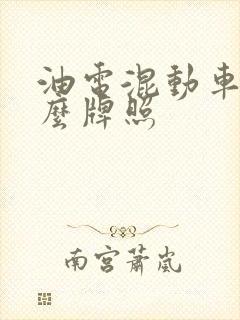 油電混動車
麼牌照
南宮蕭嵐